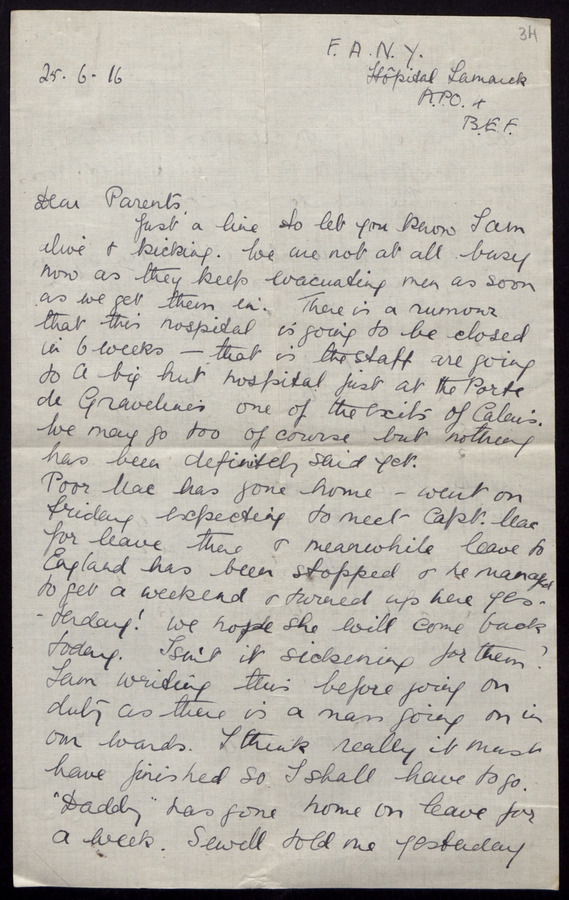 34
F.A.N.Y.
25.6.16
Hôpital Lamarck
A.P.O. +
B.E.F.
Dear Parents
Just a line to let you know I am
alive & kicking. We are not at all busy
now as they keep evacuating men as soon
as we get them in. There is a rumour
that this hospital is going to be closed
in 6 weeks — that is the staff are going
to a big hut hospital just at the Porte
de Gravelines one of the exits of Calais.
We may go too of course but nothing
has been definitely said yet.
Poor Mac has gone home - went on
Friday expecting to meet Capt. Mac
for leave there & meanwhile leave to
England has been stopped & he managed
to get a weekend & turned up here yes-
-terday! We hope she will come back
today. Isn't it sickening for them?
I am writing this before going on
duty as there is a mass going on in
our wards. I think really it must
have finished so I shall have to go.
"Daddy" has gone home on leave for
a week. Sewell told me yesterday